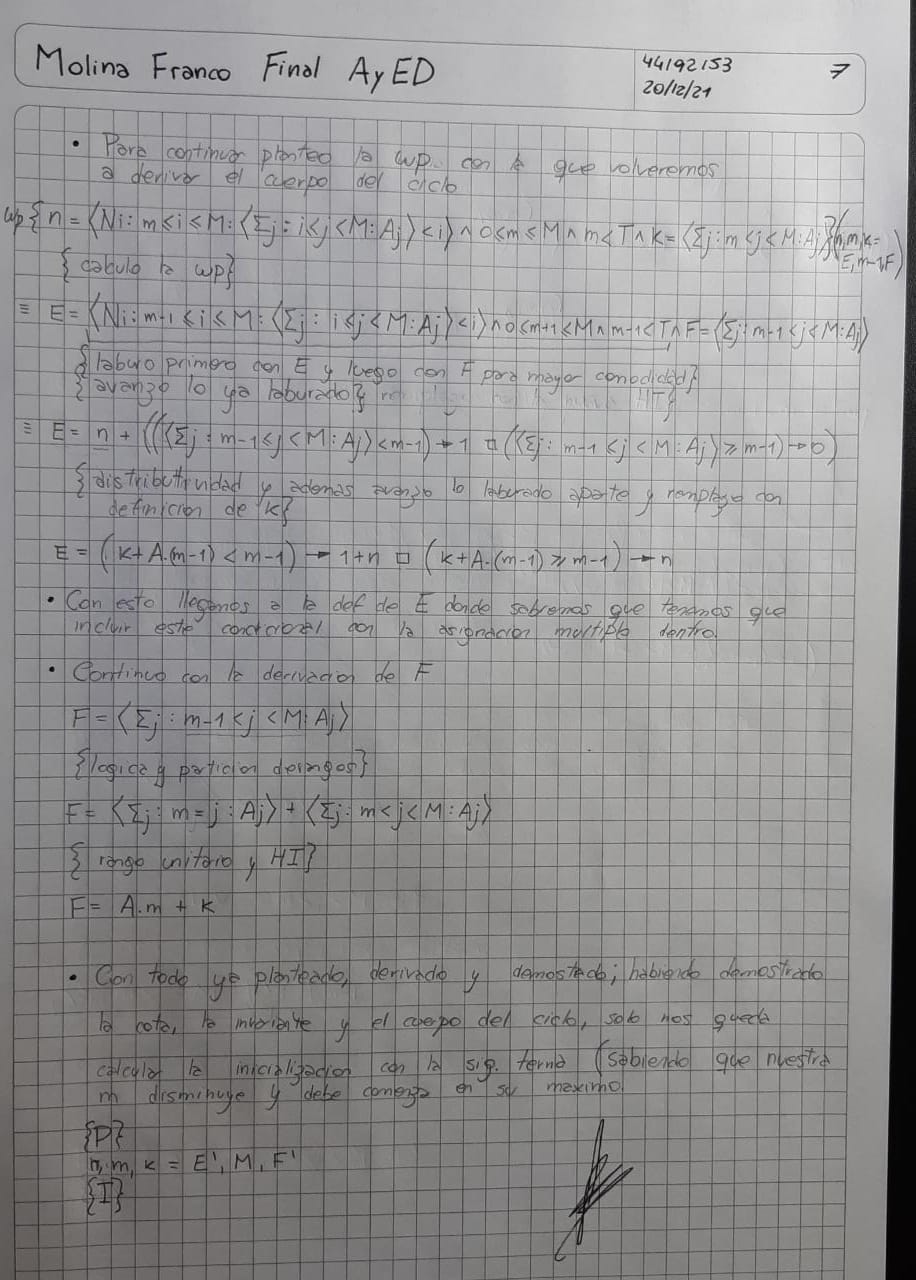 Molina Franco Final AyED
44192153
20/12/21
7
• Para continuar planteo la wp. con la que volveremos
a derivar el cuerpo del ciclo
wp{ n = ⟨Ni : m ≤ i ≤ M : ⟨Σj : i < j < M : Aj⟩ < i⟩ ∧ 0 ≤ m ≤ M ∧ m < T ∧ K = ⟨Σj : m < j < M : Aj⟩}(n,m,k =
E, m-1, F)
{calculo la wp}
≡ E = ⟨Ni : m-1 ≤ i ≤ M : ⟨Σj : i ≤ j < M : Aj⟩ < i⟩ ∧ 0 ≤ m+1 ≤ M ∧ m-1 < T ∧ F = ⟨Σj : m-1 < j < M : Aj⟩
{laburo primero con E y luego con F para mayor comodidad}
{avanzo lo ya laburado}
≡ E = n + ((⟨Σj : m-1 ≤ j < M : Aj⟩ < m-1) → 1 □ (⟨Σj : m-1 < j < M : Aj⟩ ≥ m-1) → 0)
{distributividad y ademas avanzo lo laburado aparte y remplazo con
definicion de K}
E = (K + A.(m-1) < m-1) → 1+n □ (K + A.(m-1) ≥ m-1) → n
• Con esto llegamos a la def de E donde sabremos que tenemos que
incluir este condicional con la asignacion multiple dentro.
• Continuo con la derivacion de F
F = ⟨Σj : m-1 < j < M : Aj⟩
{logica y particion de rangos}
F = ⟨Σj : m = j : Aj⟩ + ⟨Σj : m < j < M : Aj⟩
{rango unitario y HI}
F = A.m + K
• Con todo ya planteado, derivado y demostado; habiendo demostrado
la cota, la invariante y el cuerpo del ciclo, solo nos queda
calcular la inicializacion con la sig. terna (sabiendo que nuestra
m disminuye y debe comenzar en su maximo.
{P}
n, m, K = E', M, F'
{I}